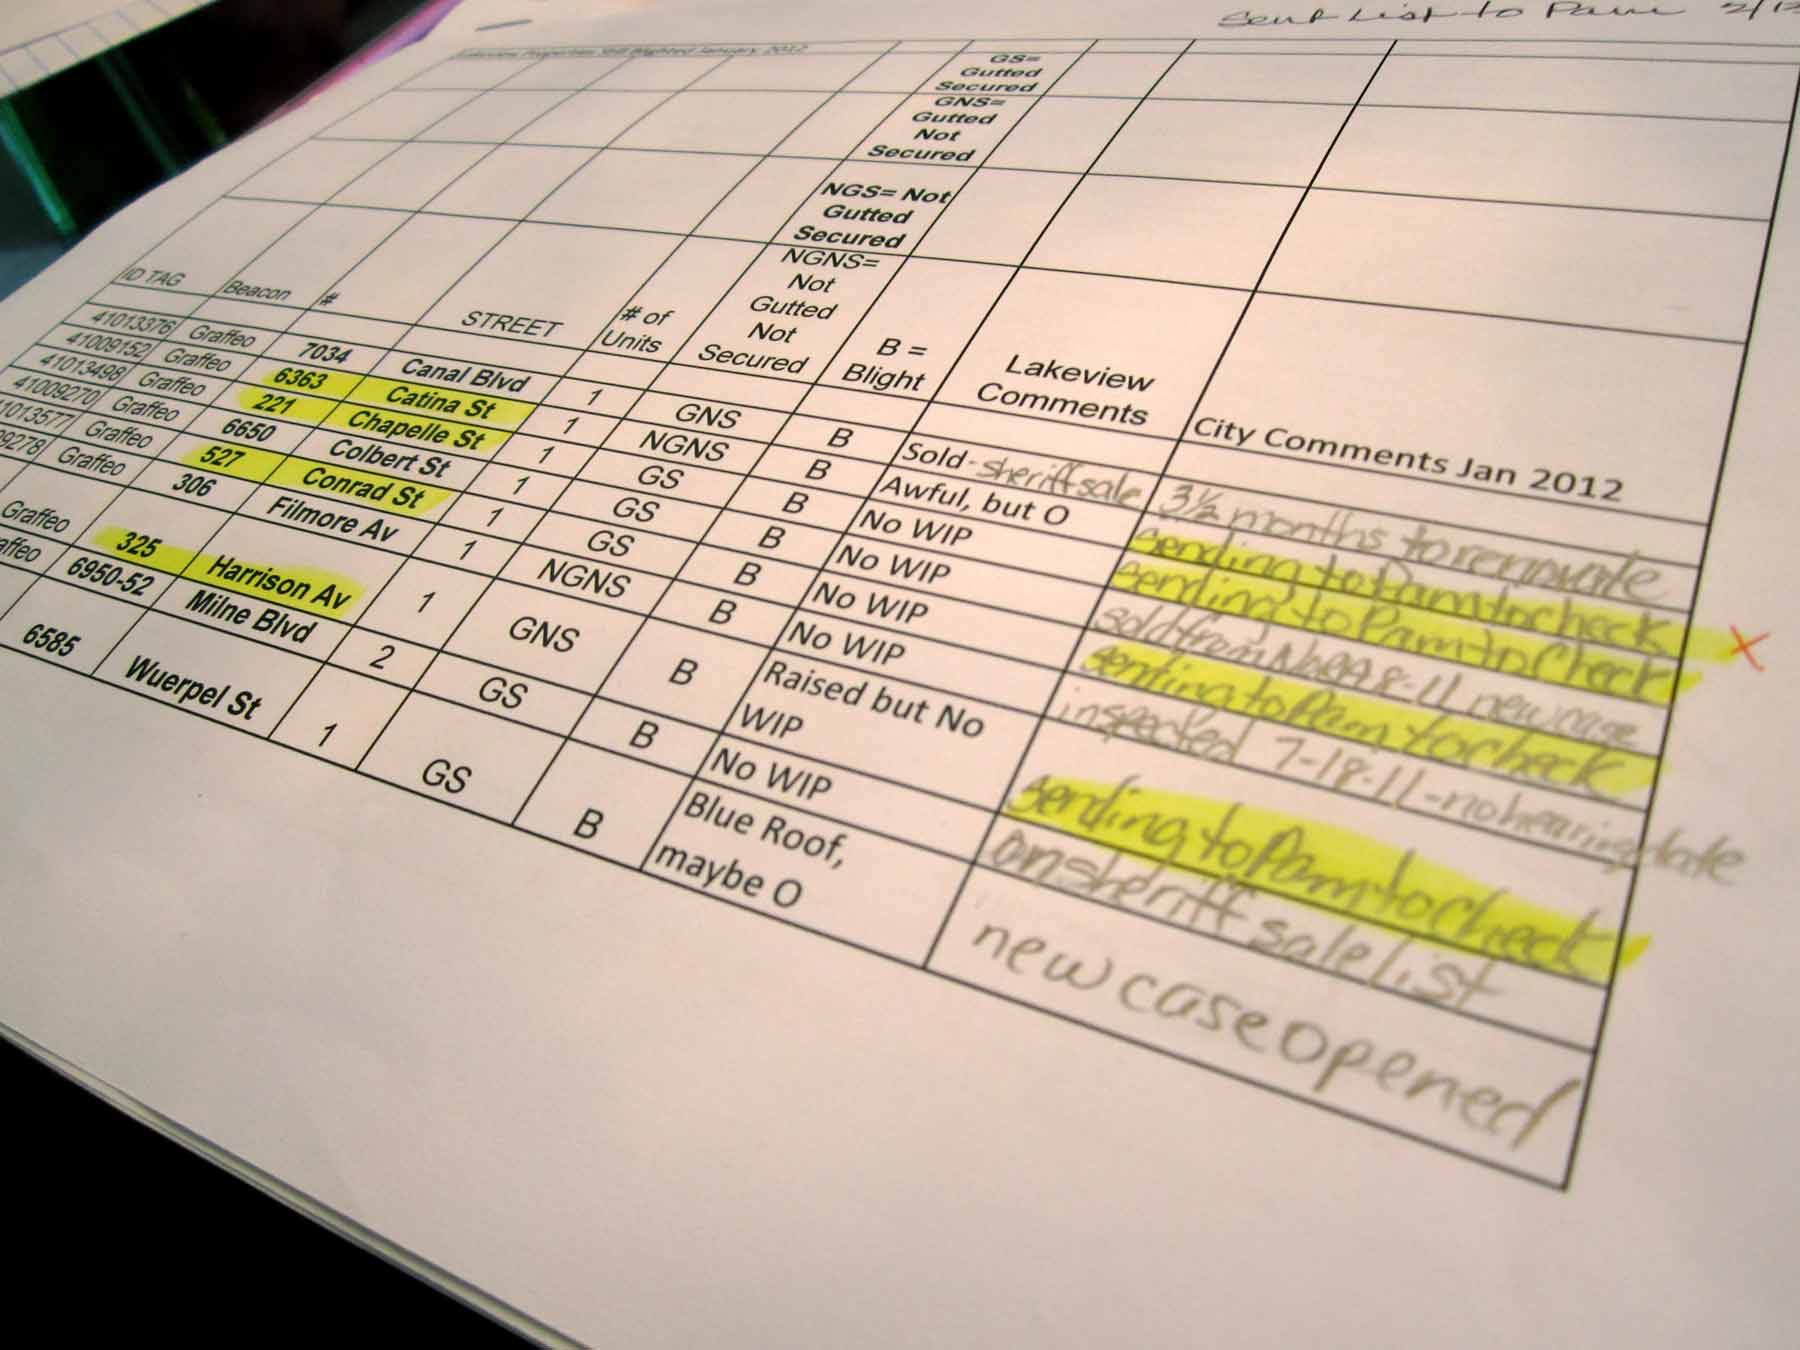 Sent List to Pam 2/12
Lakeview Properties Still Blighted January 2012
GS= Gutted Secured
GNS= Gutted Not Secured
NGS= Not Gutted Secured
ID TAG Beacon # STREET # of Units NGNS= Not Gutted Not Secured B = Blight Lakeview Comments City Comments Jan 2012
41013376 Graffeo 7034 Canal Blvd 1 GNS B Sold - sheriff sale 3½ months to renovate
41009152 Graffeo 6363 Catina St 1 NGNS B Awful, but O sending to Pam to check
41013498 Graffeo 221 Chapelle St 1 GS B No WIP sending to Pam to check X
41009270 Graffeo 6650 Colbert St 1 GS B No WIP sold from NORA 8-11 new case
1013577 Graffeo 527 Conrad St 1 GS B No WIP sending to Pam to check
09278 Graffeo 306 Filmore Av 1 NGNS B No WIP inspected 7-18-11-no hearing date
Graffeo 325 Harrison Av 1 GNS B Raised but No WIP sending to Pam to check
affeo 6950-52 Milne Blvd 2 GS B No WIP on sheriff sale list
6585 Wuerpel St 1 GS B Blue Roof, maybe O new case opened